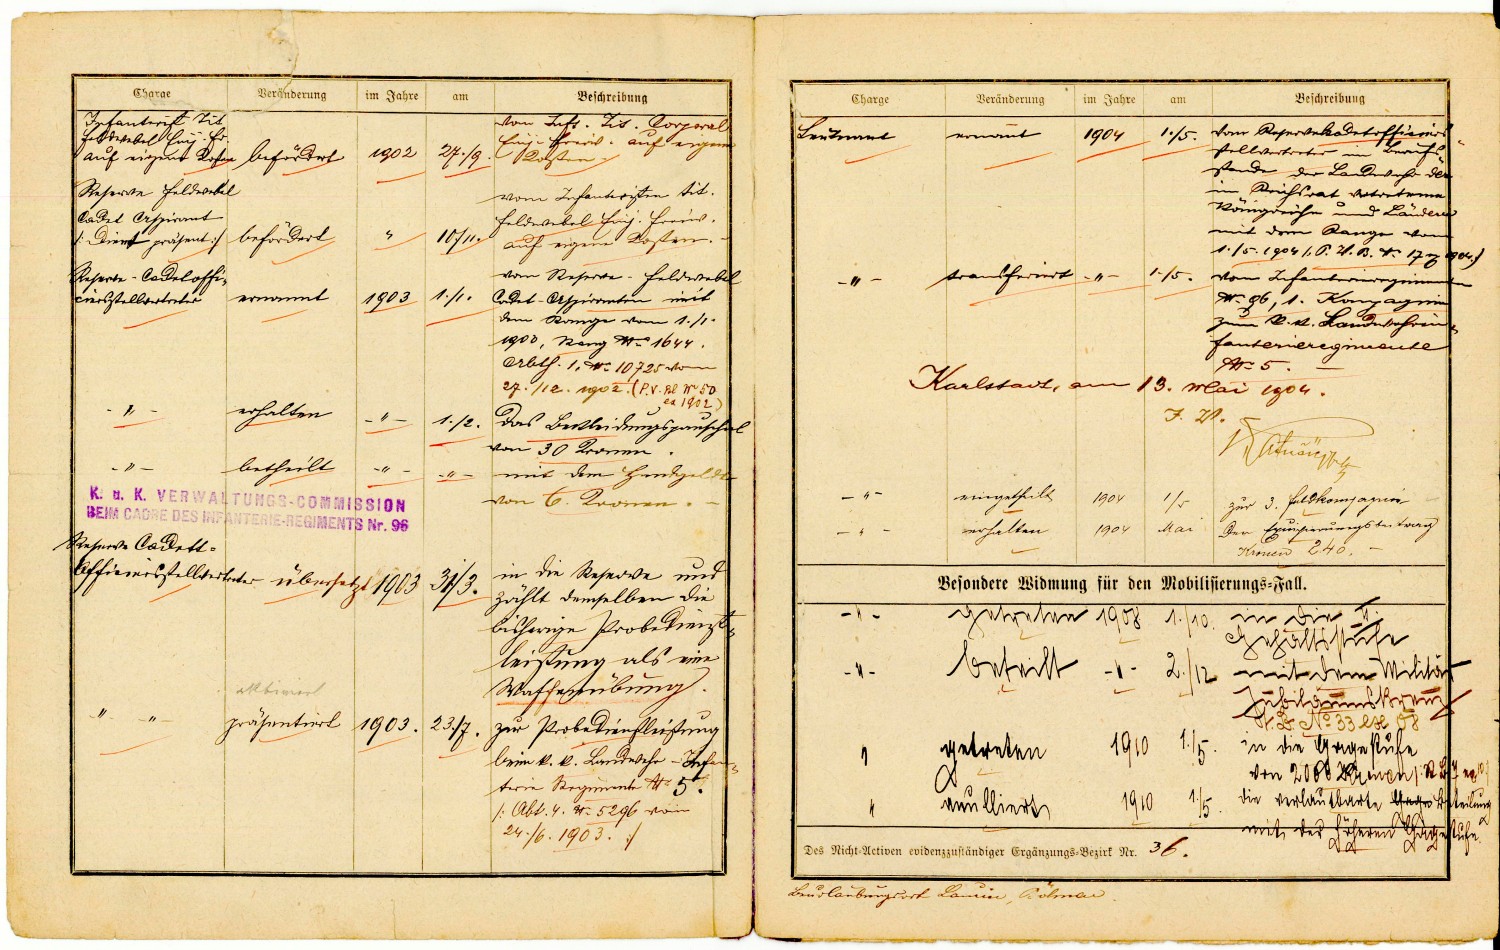 Charge Veränderung im Jahre am Beschreibung
Infanterist Tit.
Feldwebel Einj. Fr.
auf eigene Kosten befördert 1902 27./9.
vom Inft. Tit. Corporal
Einj. Freiw. auf eigene
Kosten.
Reserve Feldwebel
Cadet Aspirant
/: Dient präsent :/ befördert " 10/11.
vom Infanteristen tit.
Feldwebel Einj. Freiw.
auf eigene Kosten. -
Reserve-Cadetoffi-
ciersstellvertreter ernannt 1903 1./1.
vom Reserve-Feldwebel
Cadet-Aspiranten mit
dem Range vom 1./1.
1903, Rang No 1644.
Abth. 1, No 10725 vom
27./12. 1902. (P.V.Bl. No 50
ex 1902)
- " - erhalten - " - 1./2. Das Bekleidungspauschal
von 30 Kronen.
- " - betheilt - " - - " - mit dem Handgelde
von 6. Kronen. -
K. u. K. VERWALTUNGS-COMMISSION
BEIM CADRE DES INFANTERIE-REGIMENTS Nr. 96
Reserve Cadett-
Officiersstellvertreter übersetzt 1903 31/3.
in die Reserve und
zählt demselben die
bisherige Probedienst-
leistung als eine
Waffenübung.
aktiviert
" " präsentiert 1903. 23./7. zur Probedienstleistung
beim k. k. Landwehr-Infan-
terie Regimente No 5.
/: Abt. 4. No 5296 von
24./6. 1903. :/
Charge Veränderung im Jahre am Beschreibung
Leutnant ernannt 1904 1./5. vom Reservekadettofficiers-
stellvertreter im Berufs-
stande der Landwehr der
im Reichsrat vertretenen
Königreiche und Länder
mit dem Range vom
1./5. 1904 /: P. V. B. No 17 ex 1904 :/
- " - transferiert - " - 1./5. vom Infanterieregimente
No 96, 1. Kompagnie
zum k. k. Landwehrin-
fanterieregimente
No 5. -
Karlstadt, am 13. Mai 1904.
I. V.
- " - eingetheilt 1904 1/5 zur 3. Feldkompagnie
- " - erhalten 1904 Mai Den Equipierungsbeitrag
Kronen 240. -
Besondere Widmung für den Mobilisierungs-Fall.
- " - getreten 1908 1./10. in die II.
Gehaltsstufe
- " - beteilt - " - 2./12 mit dem Militär
Jubiläumskreuz
V. B. No 33 ex 08
" getreten 1910 1./5. in die Gagestufe
von 2000 Kronen /: V. B. 17 ex 10 :/
" annulliert 1910 1./5 die verlautbarte Beteilung
mit der höheren Gagestufe.
Des Nicht-Activen evidenzzuständiger Ergänzungs-Bezirk Nr. 36.
Beurlaubungsort Launin, Böhmen.